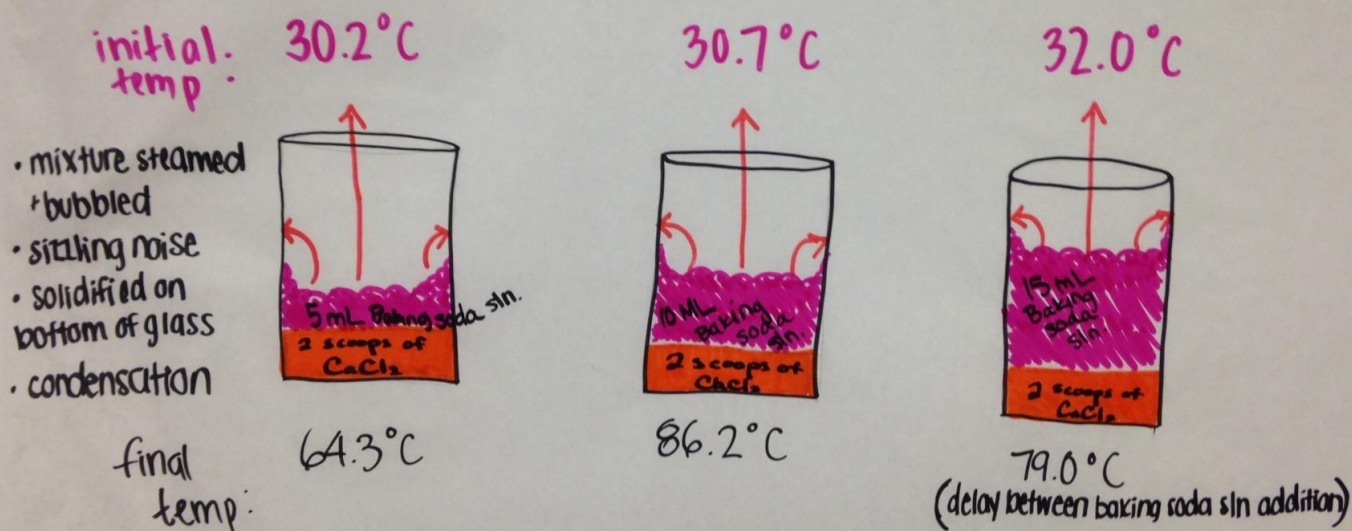 initial. 30.2°C 30.7°C 32.0°C
temp:
• mixture steamed
+bubbled
• sizzling noise
• solidified on
bottom of glass
• condensation
5 mL Baking soda sln.
2 scoops of
CaCl₂
10 ML
Baking
soda
sln.
2 scoops of
CaCl₂
15 mL
Baking
soda
sln.
2 scoops of
CaCl₂
final 64.3°C 86.2°C 79.0°C
temp:
(delay between baking soda sln addition)